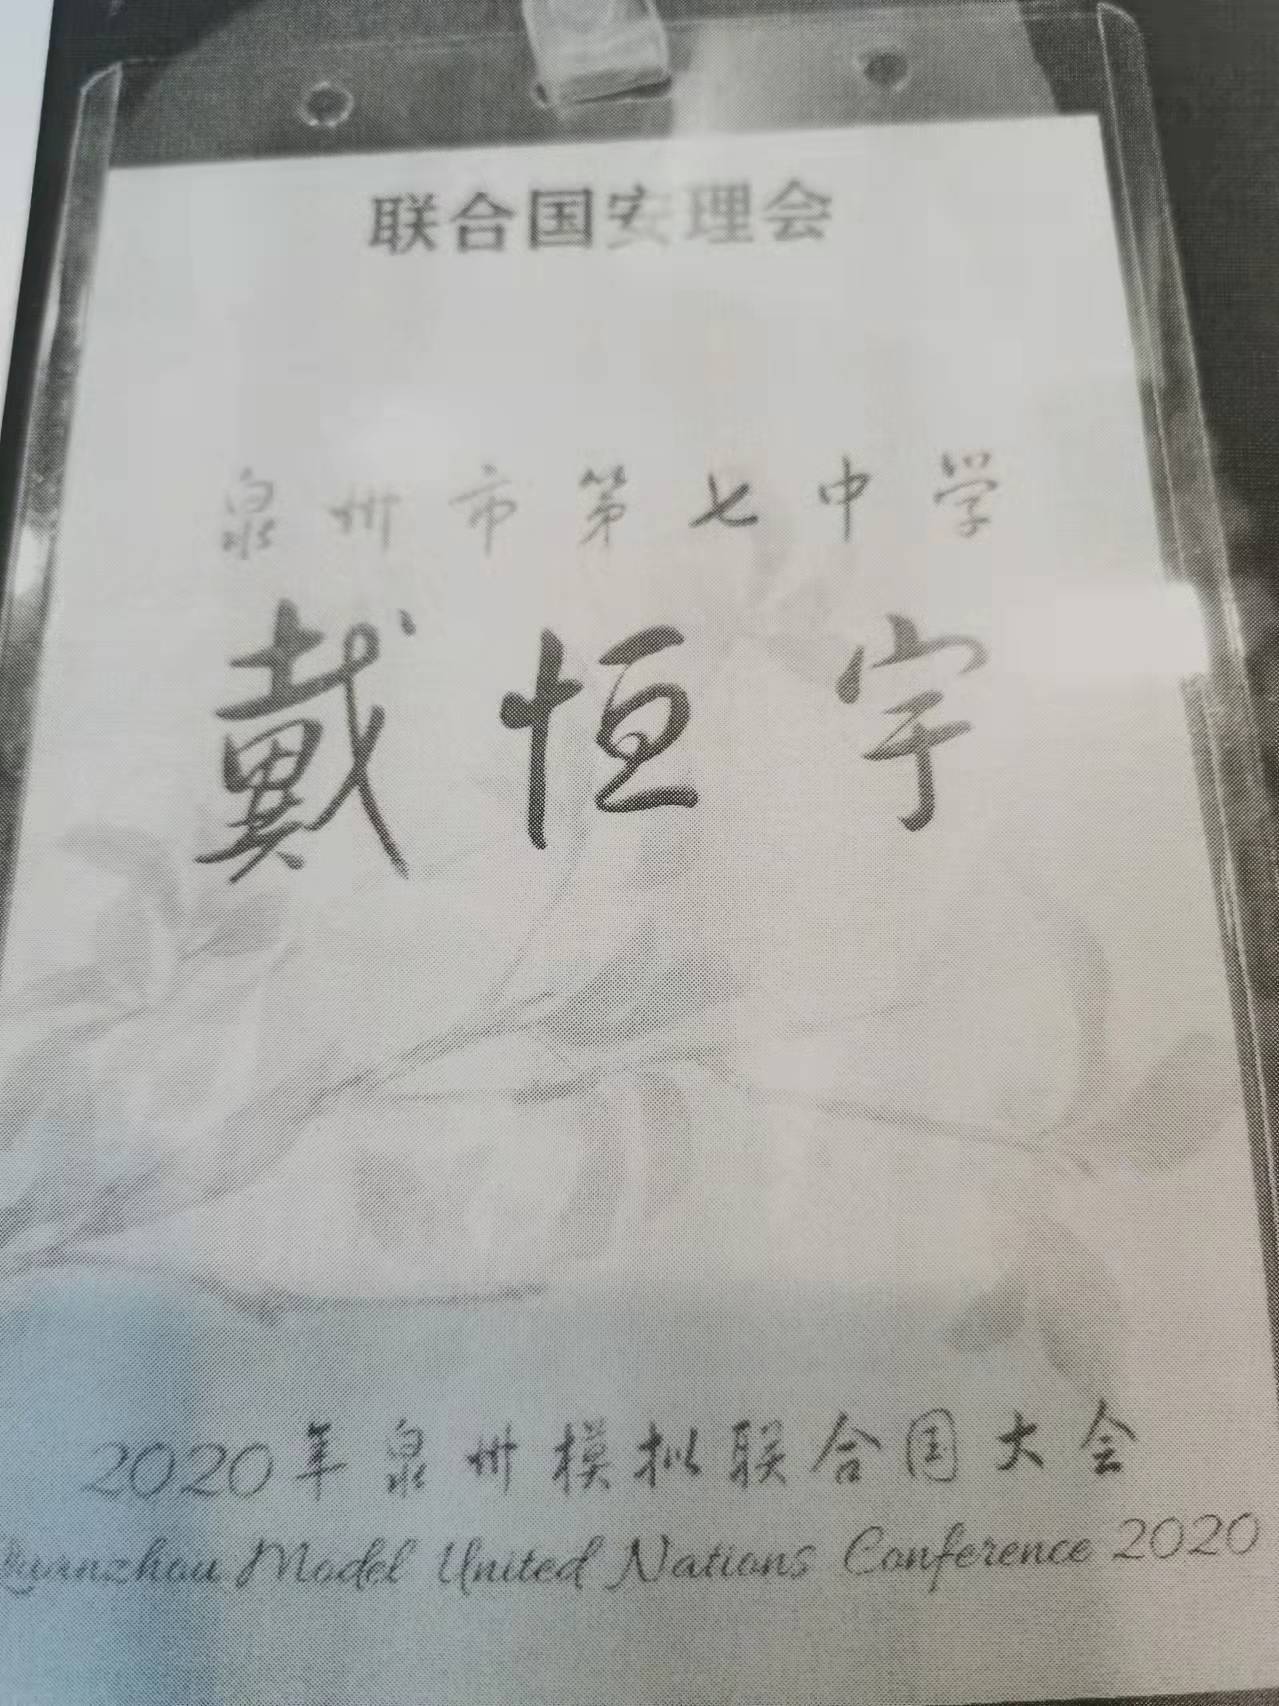 联合国安理会
泉州市第七中学
戴恒宇
2020年泉州模拟联合国大会
Quanzhou Model United Nations Conference 2020